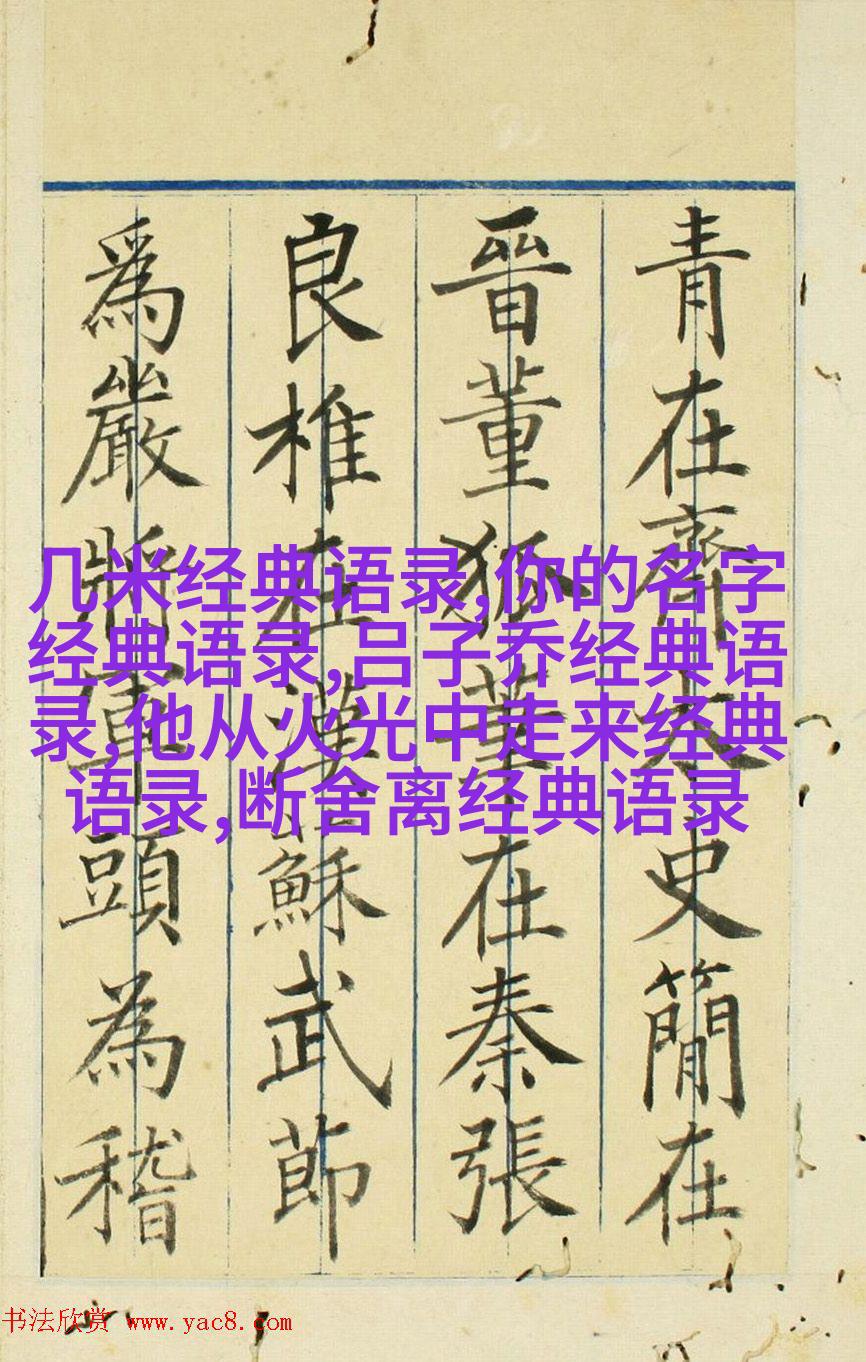 青在齊太史簡在
晉董狐筆在秦張
良椎在漢蘇武節
爲嚴將軍頭為稽
几米经典语录,你的名字
经典语录,吕子乔经典语
录,他从火光中走来经典
语录,断舍离经典语录
书法欣赏 www.yac8.com